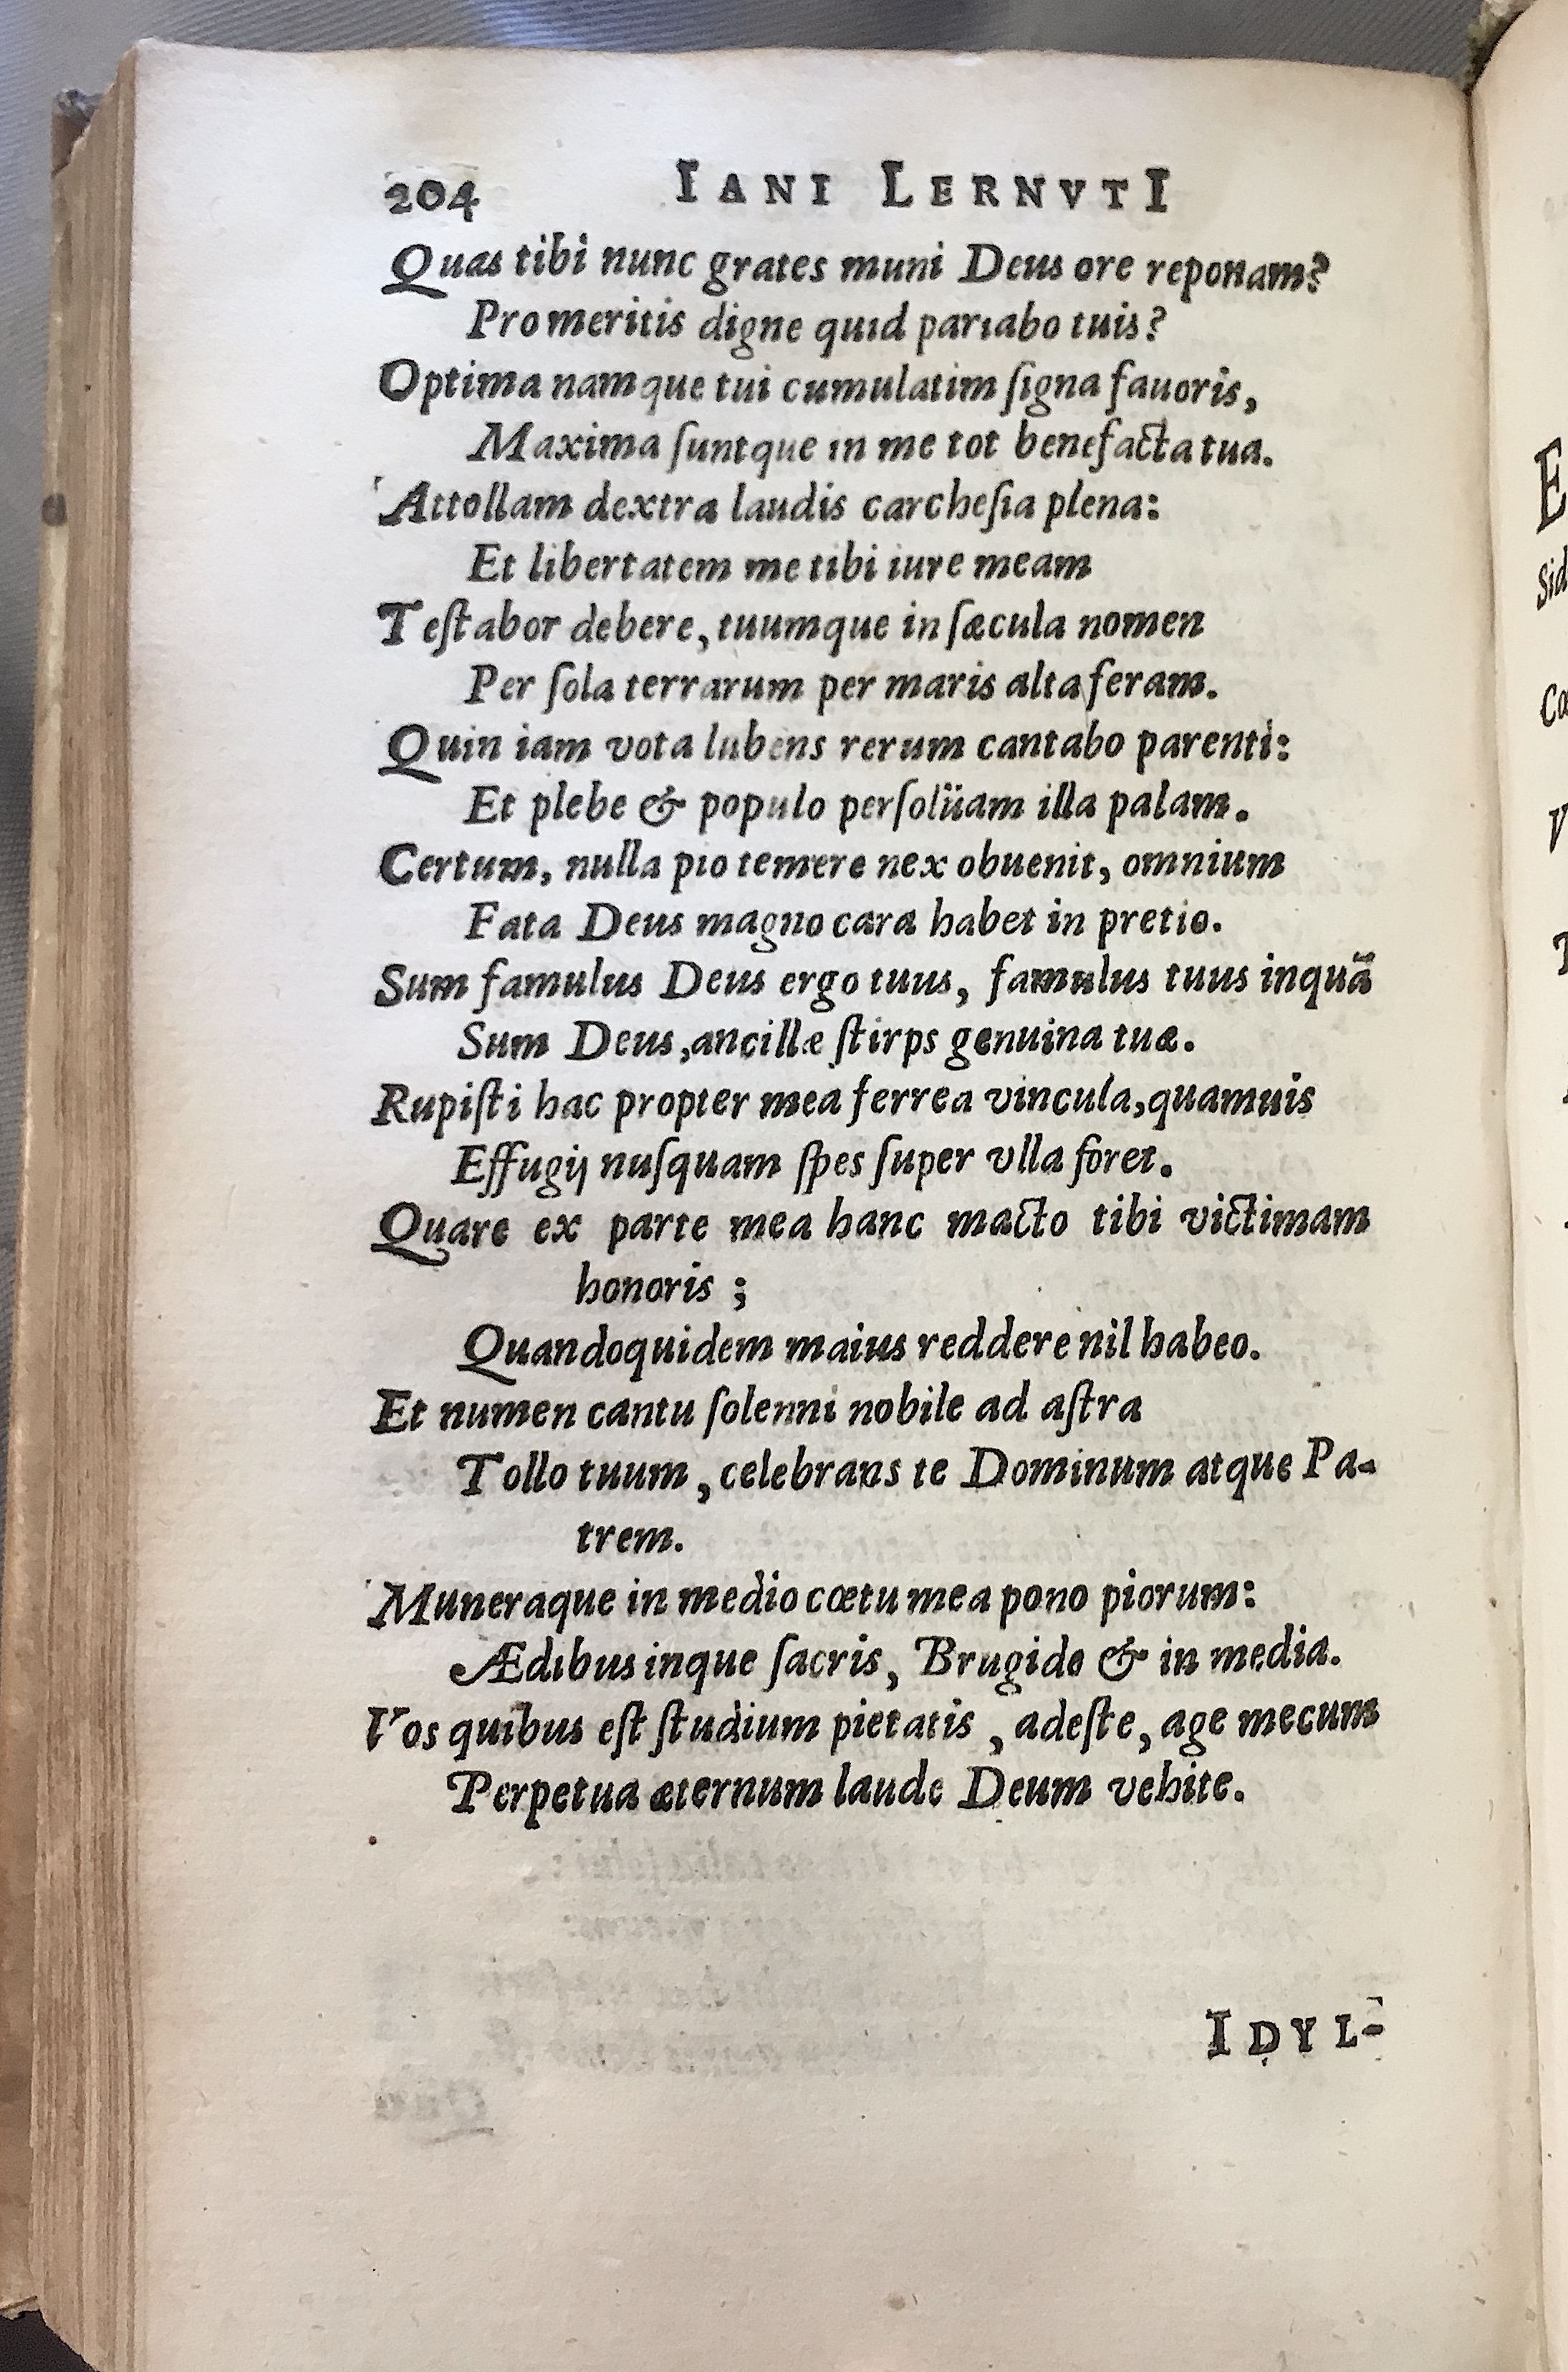 204 IANI LERNVTI
Quas tibi nunc grates muni Deus ore reponam?
Pro meritis digne quid pariabo tuis?
Optima namque tui cumulatim ſigna fauoris,
Maxima ſuntque in me tot benefacta tua.
Attollam dextra laudis carcheſia plena:
Et libertatem me tibi iure meam
Teſtabor debere, tuumque in ſæcula nomen
Per ſola terrarum per maris alta feram.
Quin iam vota lubens rerum cantabo parenti:
Et plebe & populo perſolüam illa palam.
Certum, nulla pio temere nex obuenit, omnium
Fata Deus magno cara habet in pretio.
Sum famulus Deus ergo tuus, famulus tuus inquã
Sum Deus, ancillæ ſtirps genuina tuæ.
Rupiſti hac propter mea ferrea vincula, quamuis
Effugij nuſquam ſpes ſuper vlla foret.
Quare ex parte mea hanc macto tibi victimam
honoris ;
Quandoquidem maius reddere nil habeo.
Et numen cantu ſolenni nobile ad aſtra
Tollo tuum, celebrans te Dominum atque Pa-
trem.
Muneraque in medio cœtu mea pono piorum:
Ædibus inque ſacris, Brugide & in media.
Vos quibus eſt ſtudium pietatis, adeſte, age mecum
Perpetua æternum laude Deum vehite.
IDYL-